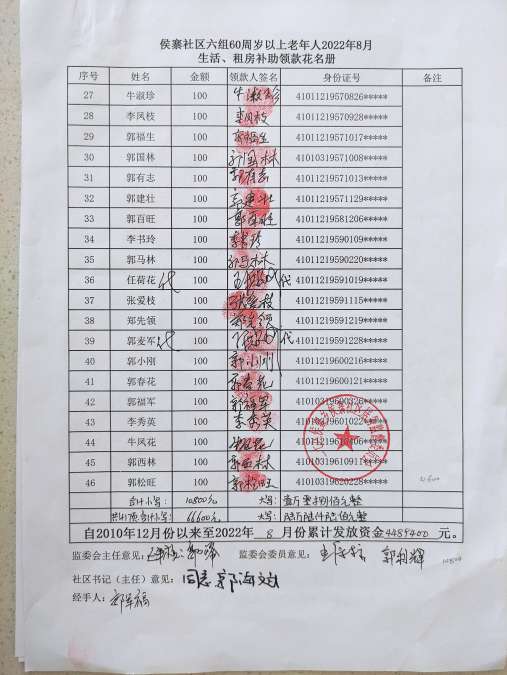 侯寨社区六组60周岁以上老年人2022年8月
生活、租房补助领款花名册
序号 姓名 金额 领款人签名 身份证号 备注
27 牛淑珍 100 牛淑珍 41011219570826*****
28 李凤枝 100 李凤枝 41011219570928*****
29 郭福生 100 郭福生 41011219571017*****
30 郭国林 100 郭国林 41010319571008*****
31 郭有志 100 郭有志 41011219571013*****
32 郭建壮 100 郭建壮 41011219571129*****
33 郭百旺 100 郭百旺 41010319581206*****
34 李书玲 100 李书玲 41011219590109*****
35 郭马林 100 郭马林 41011219590220*****
36 任荷花 代 100 代 41011219591019*****
37 张爱枝 100 张爱枝 41011219591115*****
38 郑先领 100 郑先领 41011219591219*****
39 郭麦军 代 100 代 41011219591228*****
40 郭小刚 100 郭小刚 41011219600216*****
41 郭春花 100 郭春花 41011219600121*****
42 郭福军 100 郭福军 41010319600326*****
43 李秀英 100 李秀英 4101121961022*****
44 牛凤花 100 牛凤花
45 郭西林 100 郭西林 41010319610911*****
46 郭松旺 100 郭松旺 41010319620228*****
合计小写: 10800元 大写: 壹万零捌佰元整
共 项合计小写: 66600元 大写: 陆万陆仟陆佰元整
自2010年12月份以来至2022年 8 月份累计发放资金 4489400 元。
监委会主任意见: 监委会委员意见: 郭利辉
社区书记（主任）意见: 同意 郭海斌
经手人: 郭军福